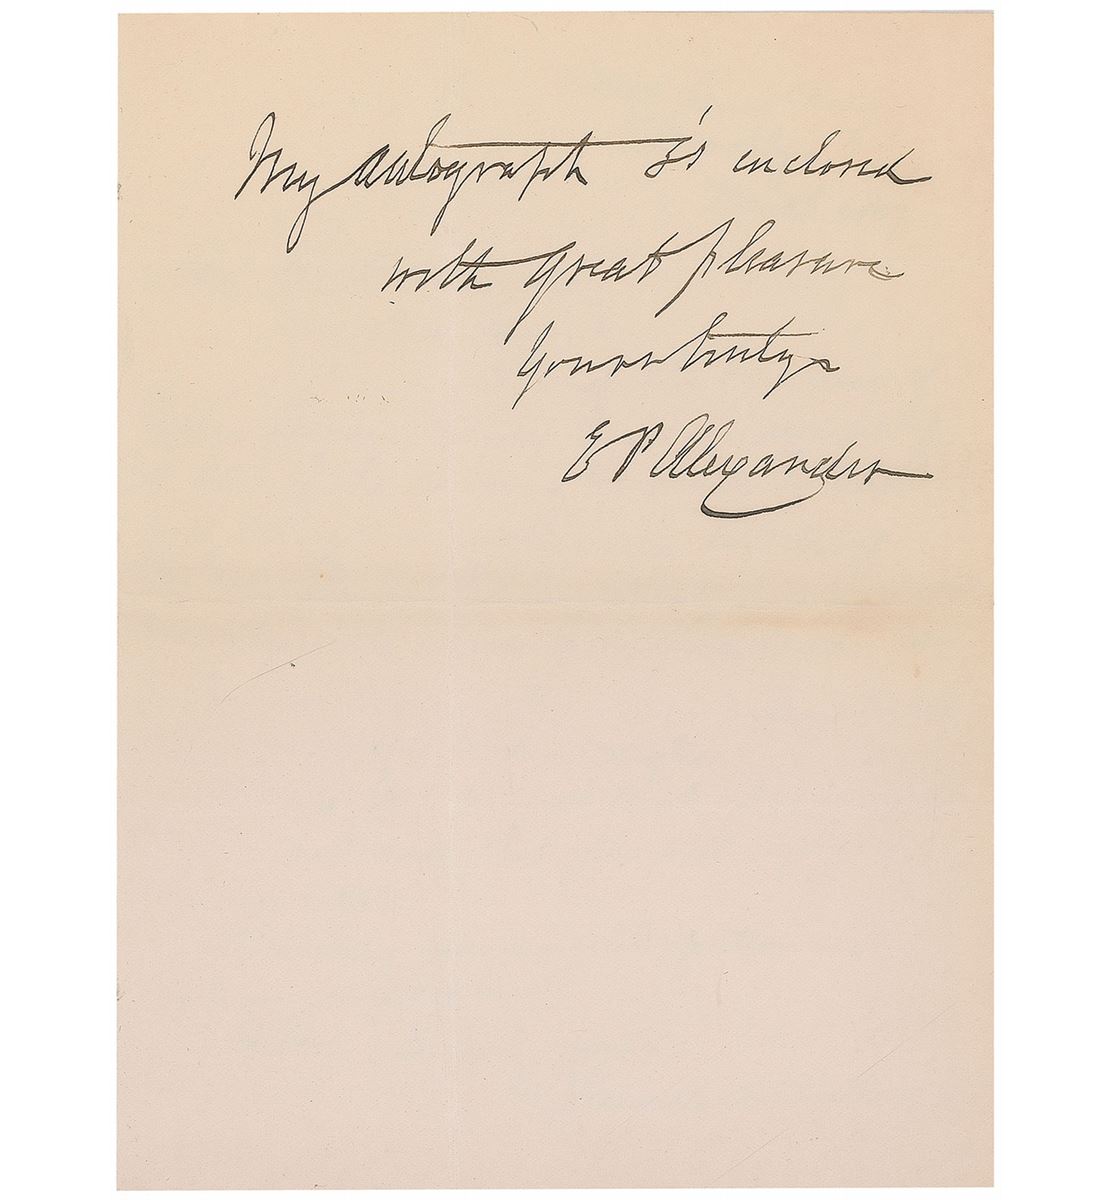 My autograph is enclosed
with great pleasure
Yours truly
E P Alexander